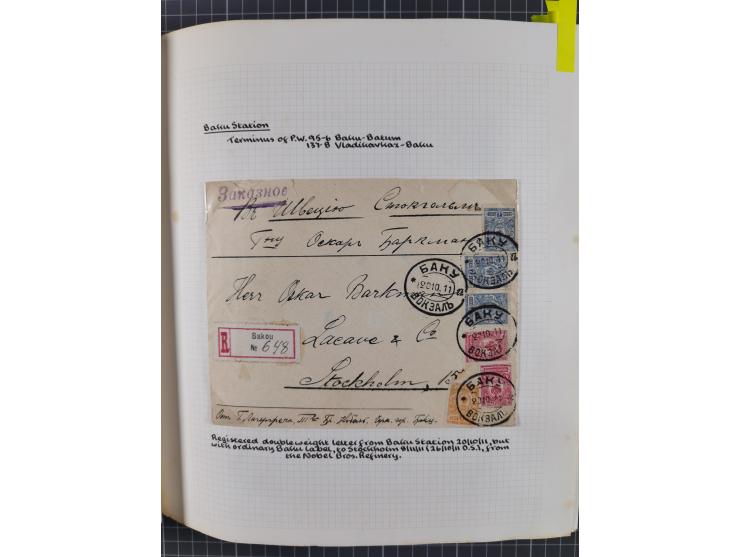 Baku Station
Terminus of P.W. 95-6 Baku-Batum
137-8 Vladikavkaz-Baku
Заказное
Въ Швецію Стокгольмъ
Гну Оскаръ Баркман
БАКУ
ВОКЗАЛЪ
Herr Oskar Barkman
R
Bakou
№ 648
Lacave & Co
Stockholm
БАКУ
20.10.11
ВОКЗАЛЪ
БАКУ
ВОКЗАЛЪ
БАКУ
ВОКЗАЛЪ
Registered double weight letter from Baku Station 20/10/11, but
with ordinary Baku label, to Stockholm 8/11/11 (26/10/11 O.S.), from
the Nobel Bros. Refinery.